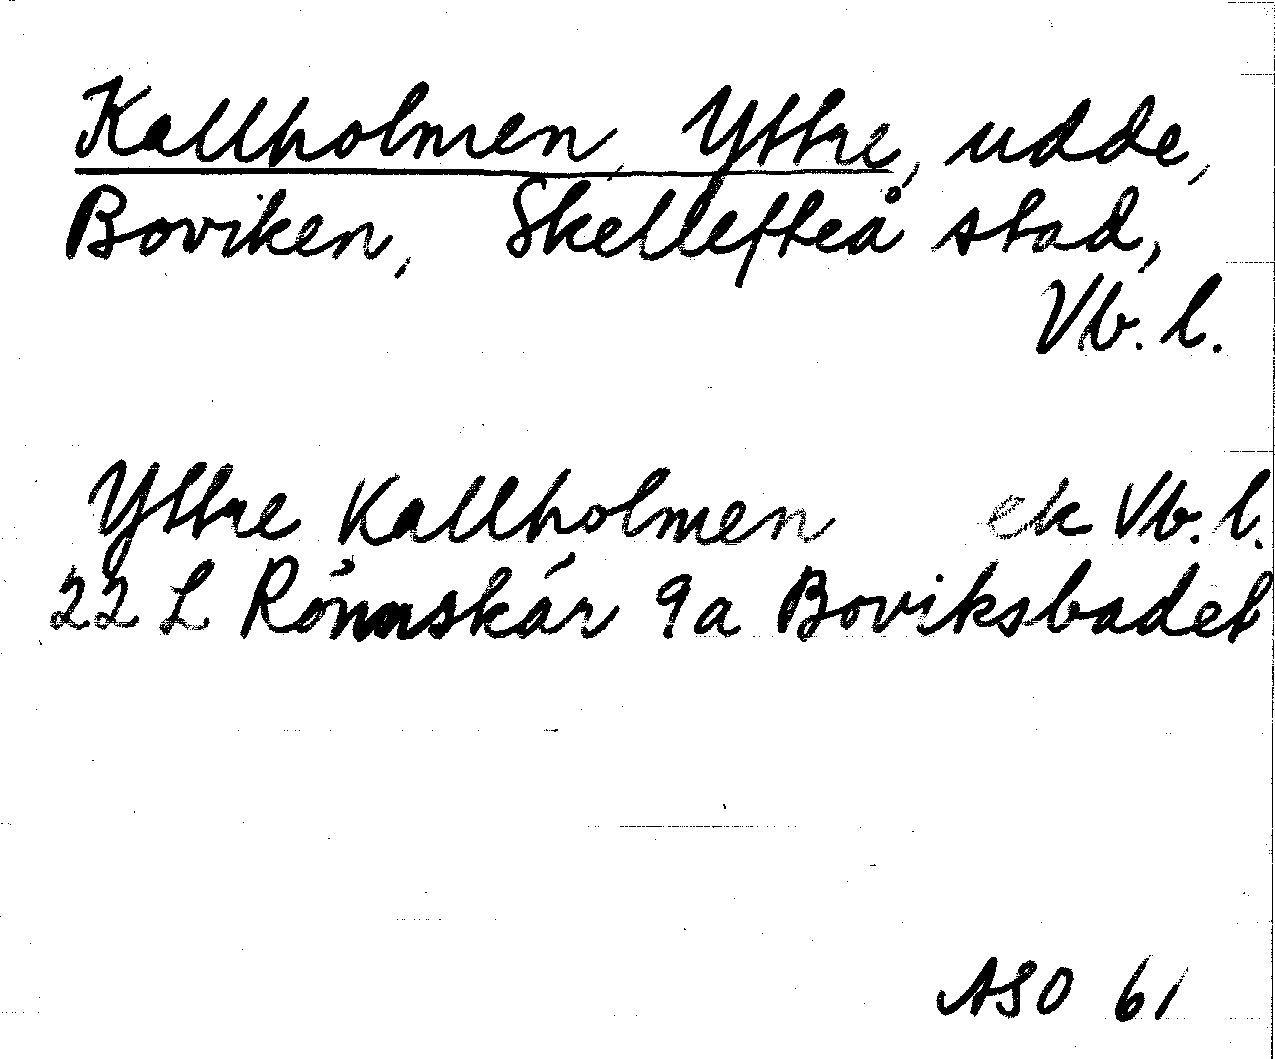 Kallholmen, Yttre, udde,
Boviken, Skellefteå stad,
Vb. l.
Yttre Kallholmen ek Vb. l.
22 L Rönnskär 9a Boviksbadet
ASO 61